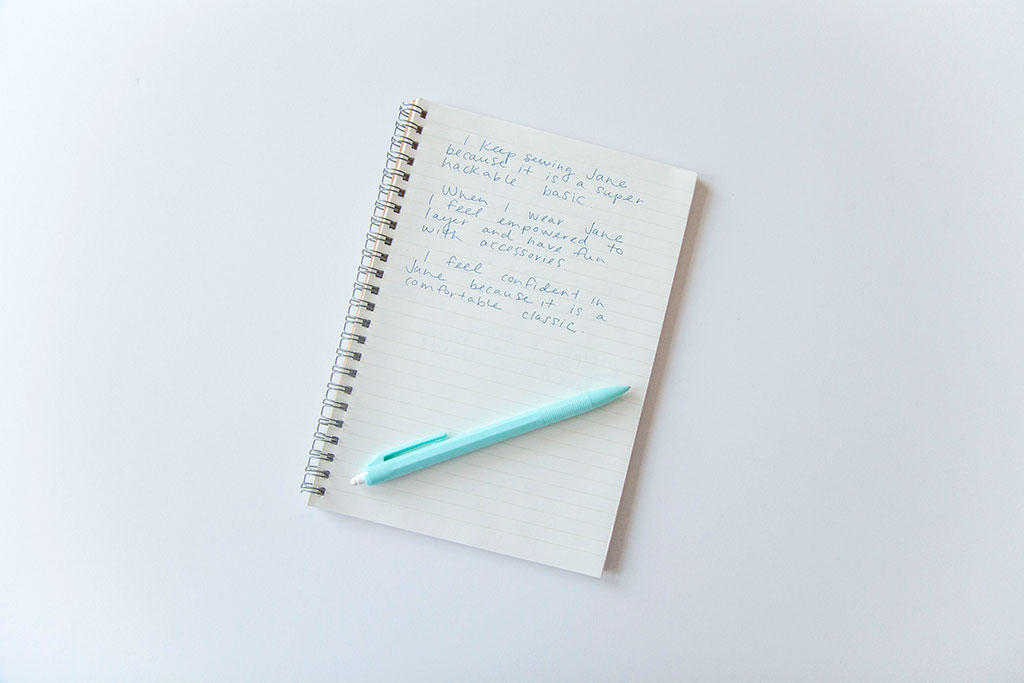 I keep sewing Jane
because it is a super
hackable basic.
When I wear Jane
I feel empowered to
layer and have fun
with accessories.
I feel confident in
Jane because it is a
comfortable classic.